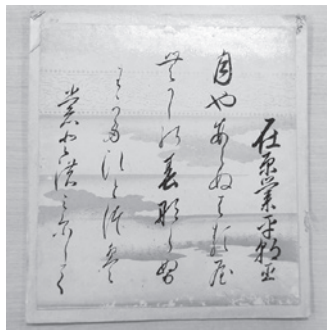 在原業平朝臣
月やあらぬはるや
むかしの春ならぬ
わかみひとつは
もとのみにして